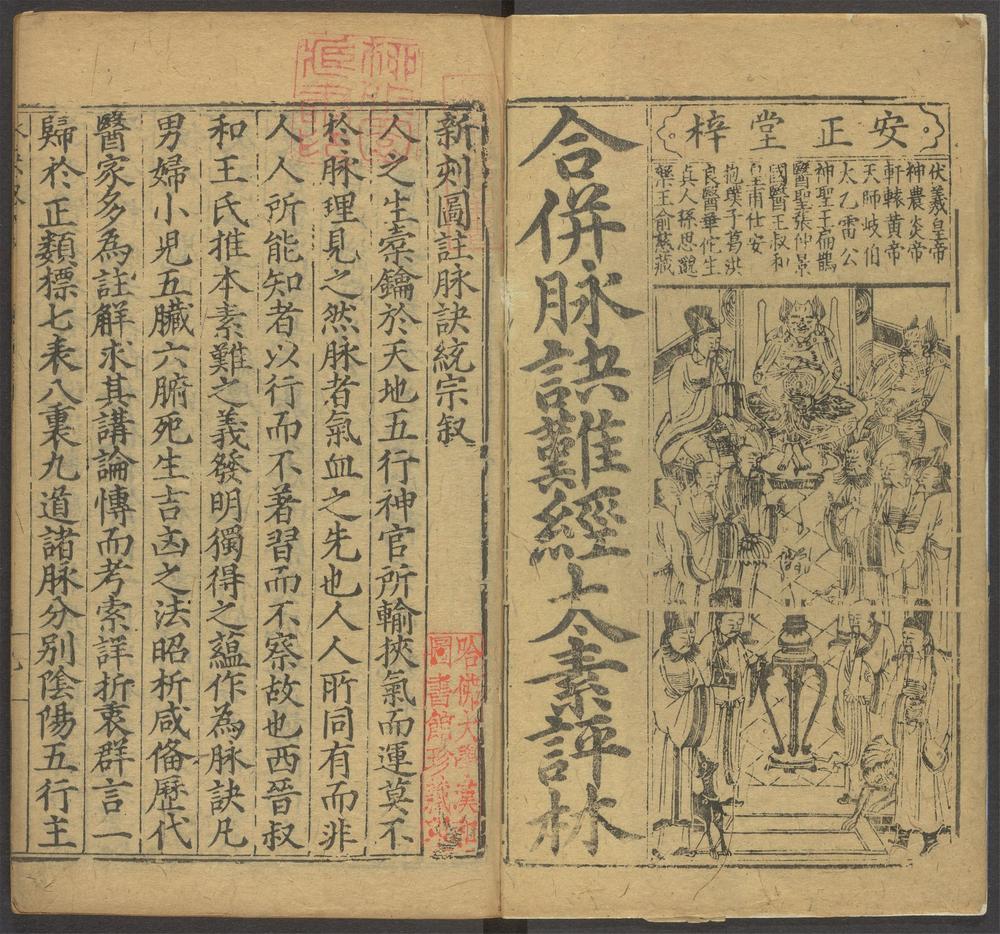 安正堂梓
伏羲皇帝
神農炎帝
軒轅黃帝
天師岐伯
太乙雷公
神聖王扁鵲
醫聖張仲景
國醫王叔和
皇甫仕安
抱璞子葛洪
良醫華佗生
真人孫思邈
藥王俞慈藏
合併脉訣難經太素評林
新刻圖註脉訣統宗叙
人之生橐鑰於天地五行神官所輸挾氣而運莫不
於脉理見之然脉者氣血之先也人人所同有而非
人人所能知者以行而不著習而不察故也西晉叔
和王氏推本素難之義發明獨得之蘊作為脉訣凡
男婦小兒五臟六腑死生吉凶之法昭析咸俻歷代
醫家多為註解求其講論愽而考索詳折衷群言一
歸於正類標七表八裏九道諸脉分別陰陽五行主
哈佛大學漢和
圖書館珍藏印